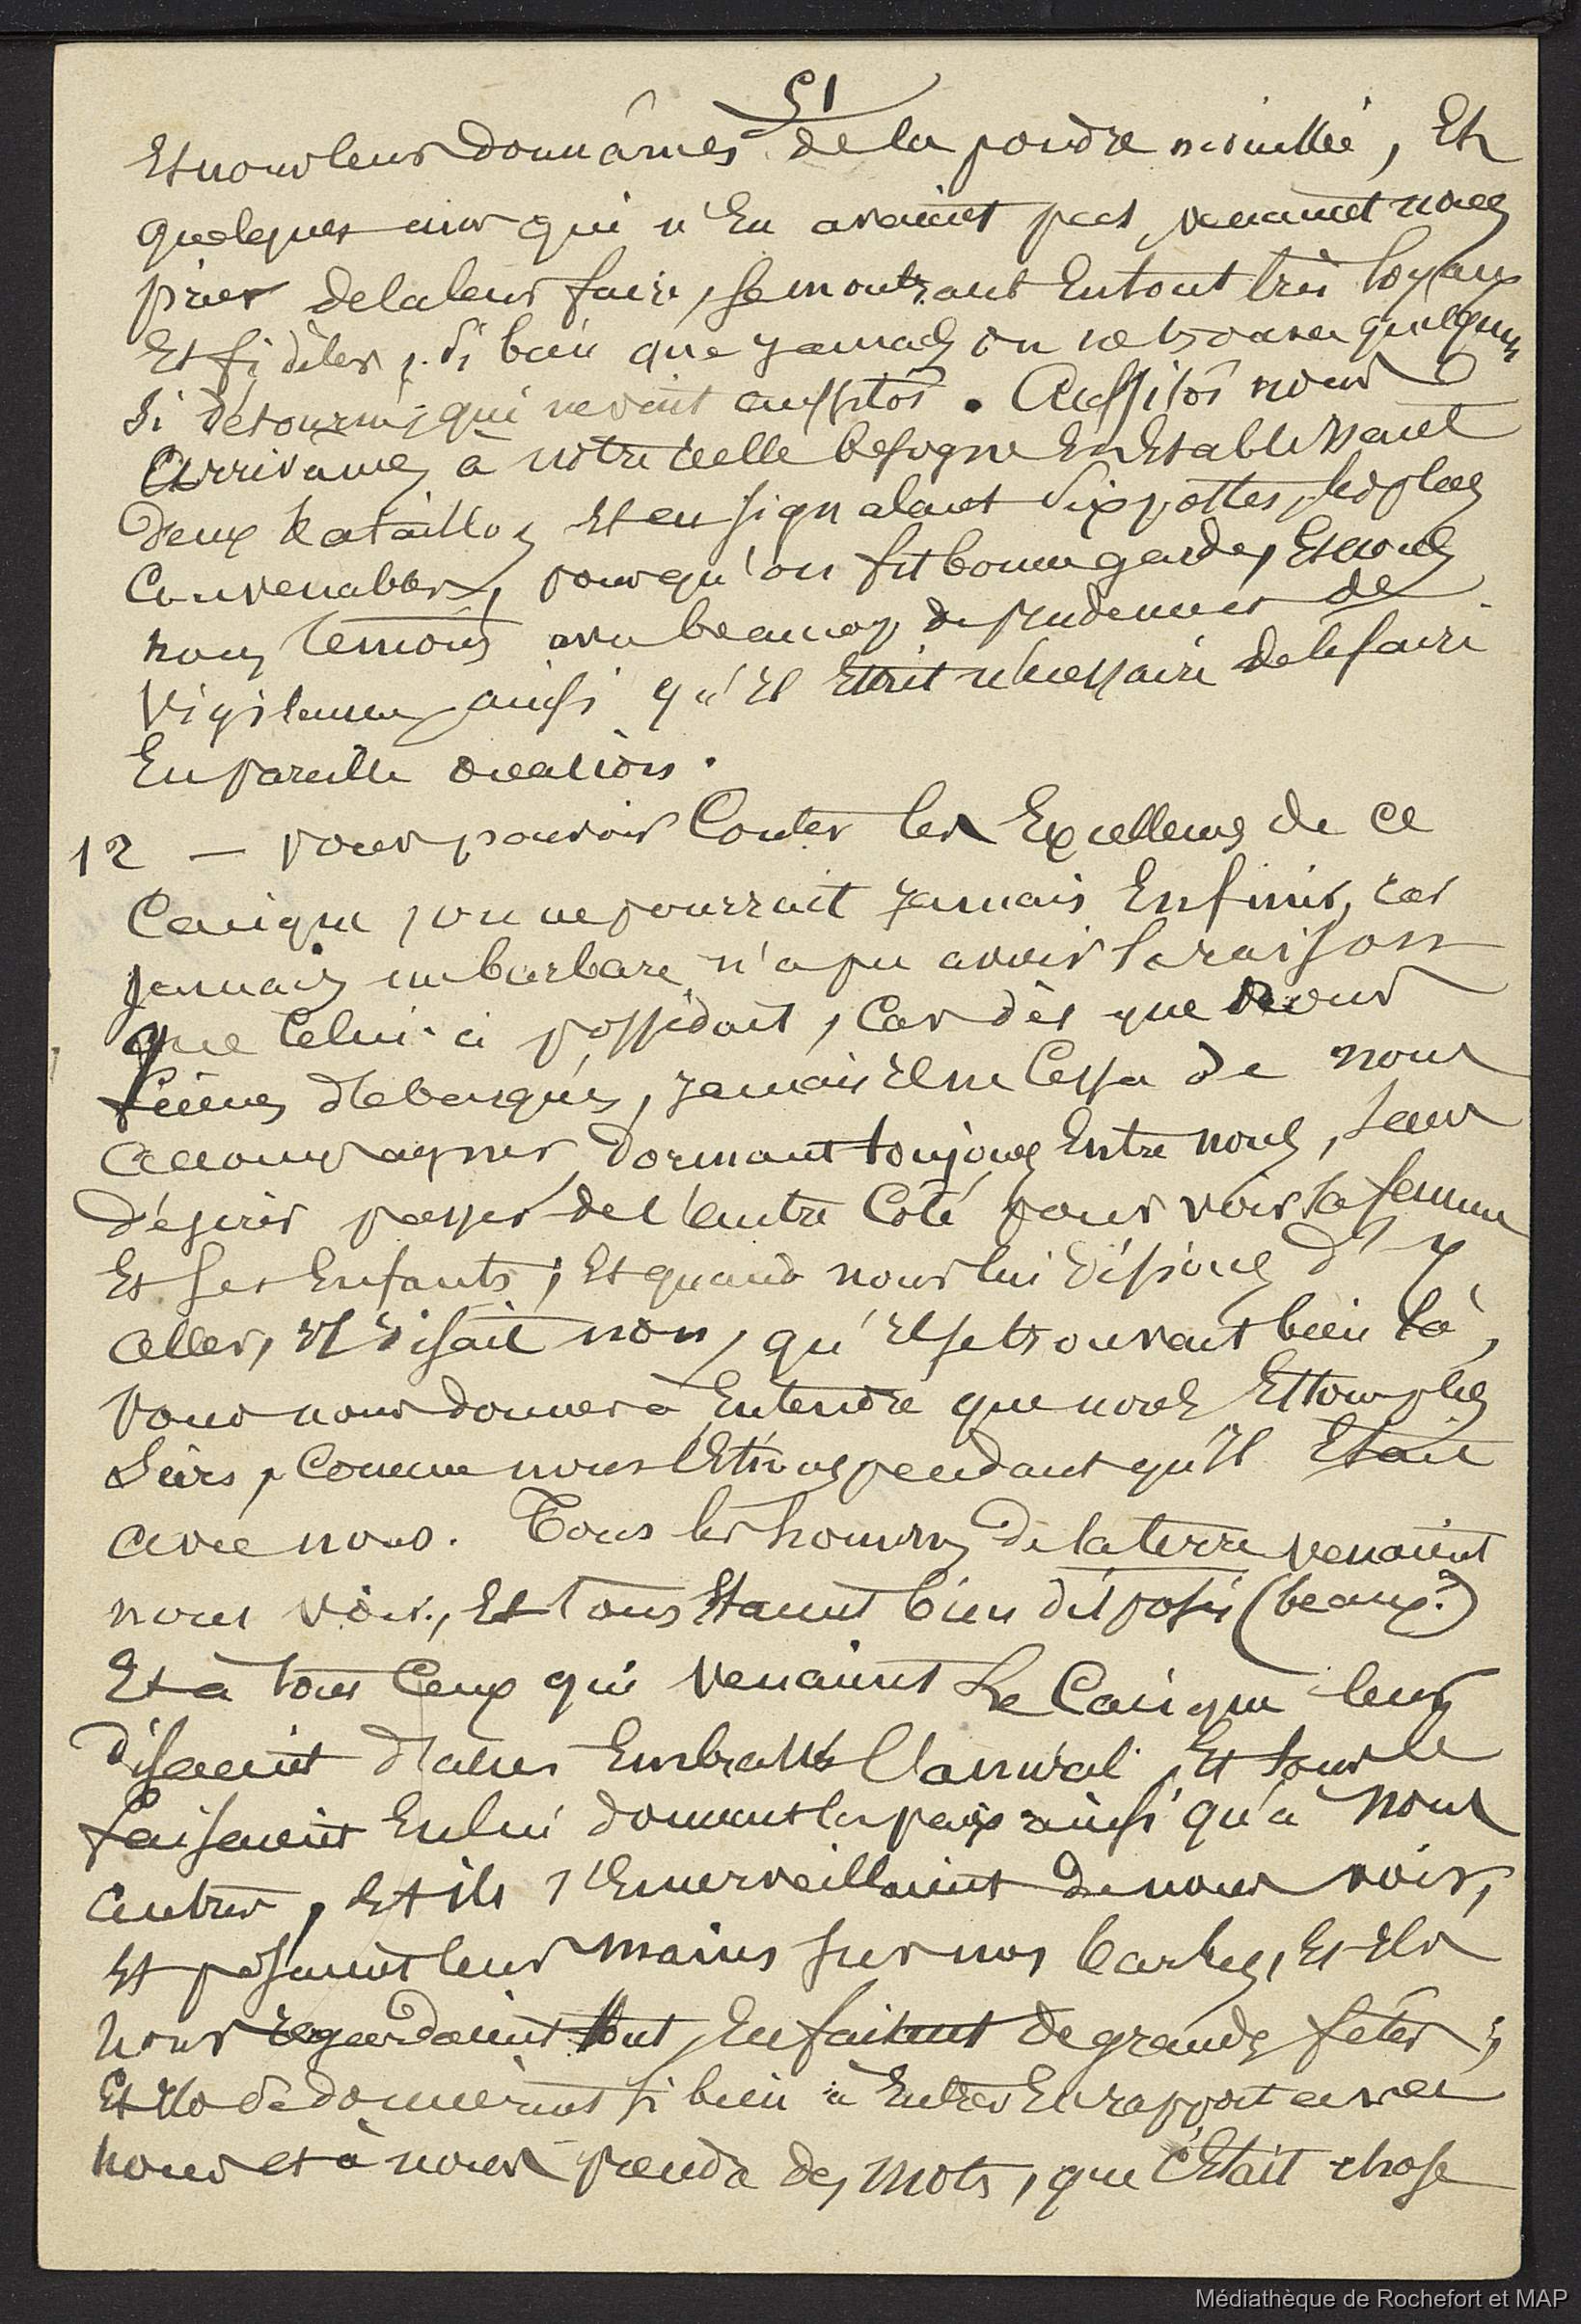 51
Et nous leur donnâmes de la poudre mouillée, Et
quelques uns qui n'En avaient pas, venaient nous
prier de la leur faire, se montrant En tout très loyaux
Et fidèles, si bien que jamais on ne trouva quelqu'un
si détourné qui ne vint aussitôt. Aussitôt nous
Arrivâmes à notre telle besogne En Etablissant
deux bataillons Et en signalant six postes, les plus
Convenables, pour qu'on fit bonne garde, Et nous
nous tenions avec beaucoup de prudence de
Vigilance ainsi qu'Il Etait nécessaire de le faire
En pareille occasion.
12 — pour pouvoir Conter les Excellences de ce
Cacique, on ne pourrait jamais En finir, car
jamais un barbare n'a pu avoir la raison
que Celui-ci possédait, Car dès que nous
fûmes débarqués, jamais Il ne Cessa de nous
accompagner, dormant toujours Entre nous, sans
désirer passer de l'autre Côté pour voir sa femme
Et ses Enfants; Et quand nous lui disions d'y
aller, Il disait non, qu'Il se trouvait bien là,
pour nous donner à Entendre que nous Ettons plus
Sûrs, Comme nous l'Etions pendant qu'Il Etait
avec nous. Tous les hommes de la terre venaient
nous voir, Et tous Etaient bien disposés (beaux?)
Et à tous Ceux qui venaient Le Cacique leur
disaient d'aller Embrasser l'amiral, Et tous le
faisaient En lui donnant la paix ainsi qu'à nous
autres, Et ils s'Emerveillaient de nous voir,
Et posaient leurs mains sur nos barbes, Et Ils
nous regardaient tout, En faisant de grandes fêtes;
Et Ils se donnèrent si bien à Entrer En rapport avec
nous et à nous prendre des mots, que c'Etait chose
Médiathèque de Rochefort et MAP